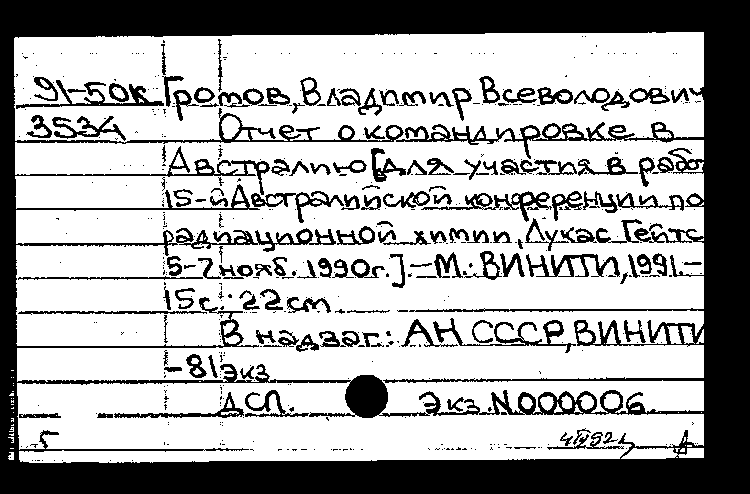 91-50к Громов, Владимир Всеволодович
3534 Отчет о командировке в
Австралию [для участия в рабо
15-й Австралийской конференции по
радиационной химии, Лукас Гейтс
5-7 нояб. 1990г.].-М.: ВИНИТИ, 1991.-
15с.; 22см.
В надзаг.: АН СССР, ВИНИТИ
-81экз
ДСП. Экз. N000006.
5 4 IV 92 А